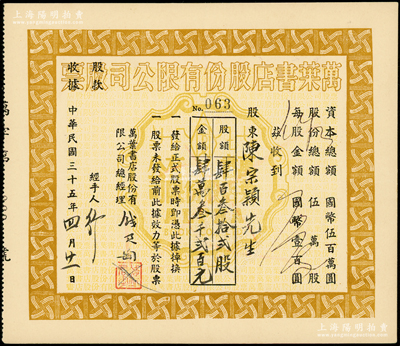 萬葉書店股份有限公司股票
資本總額 國幣伍百萬圓
股份總額 伍萬股
每股金額 國幣壹百圓
茲收到
股東陳宗穎先生
No. 063
股額 肆百叁拾弍股
金額 肆萬叁千弍百元
一 發給正式股票時即憑此據掉換
一 股票未發給前此據效力等於股票
萬葉書店股份有限公司總經理
經手人
中華民國三十五年四月廿一日
股款收據